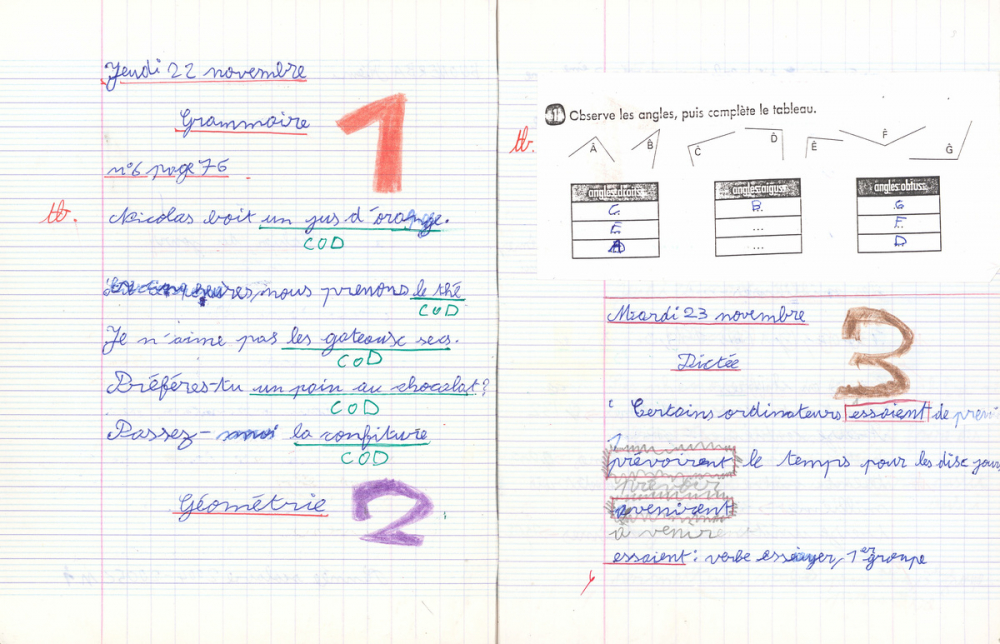 Jeudi 22 novembre
Grammaire
1
n°6 page 76
tb.
Nicolas boit un jus d'orange.
COD
nous prenons le thé
COD
Je n'aime pas les gateaux secs.
COD
Préféres-tu un pain au chocolat?
COD
Passez- la confiture
COD
Géométrie
2
Observe les angles, puis complète le tableau.
tb.
Â B̂ Ĉ D̂ Ê F̂ Ĝ
angles droits angles aigus angles obtus
C. B. G
E ... F.
A ... D
Mardi 23 novembre
3
Dictée
Certains ordinateurs essaient de
prévoirent le temps pour les dix jours
prévoir
avenirent
à venire
essaient : verbe essayer, 1er groupe